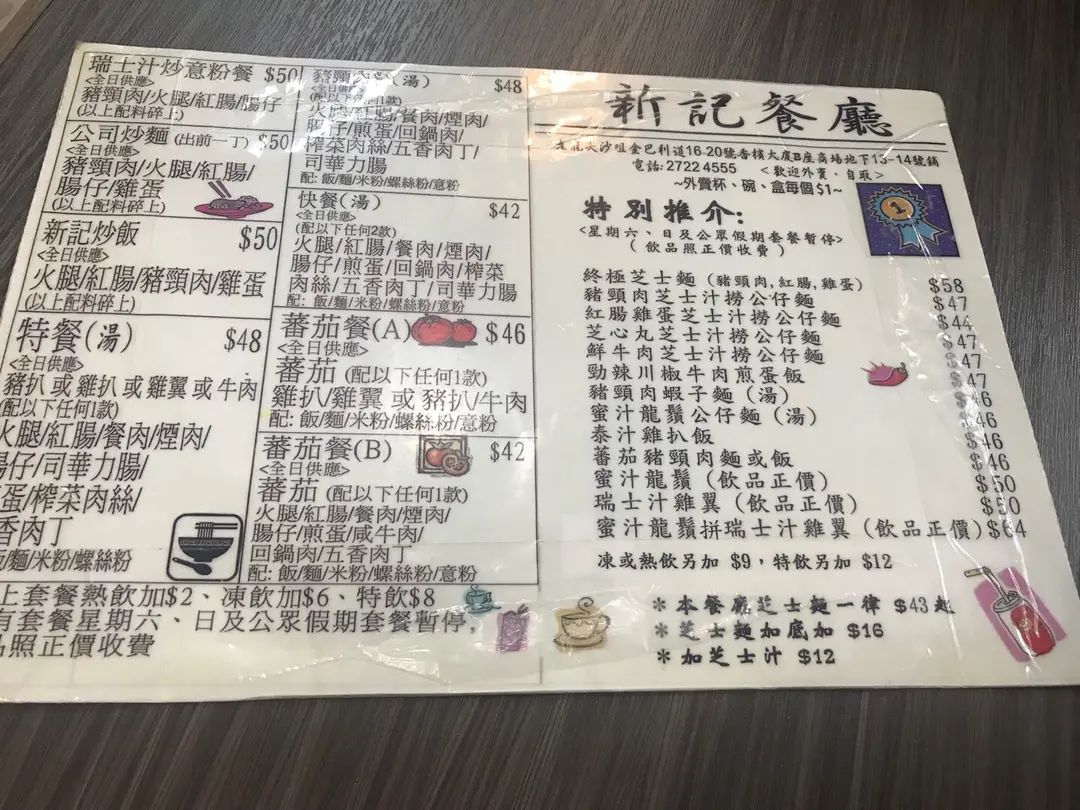 瑞士汁炒意粉餐 $50
<全日供應>
豬頸肉/火腿/紅腸/腸仔
(以上配料碎上)
公司炒麵 (出前一丁) $50
<全日供應>
豬頸肉/火腿/紅腸/
腸仔/雞蛋
(以上配料碎上)
新記炒飯 $50
<全日供應>
火腿/紅腸/豬頸肉/雞蛋
(以上配料碎上)
特餐(湯) $48
<全日供應>
豬扒 或 雞扒 或 雞翼 或 牛肉
(配以下任何1款)
火腿/紅腸/餐肉/煙肉/
腸仔/司華力腸
蛋/榨菜肉絲/
香肉丁
飯/麵/米粉/螺絲粉
豬頸 (湯) $48
<全日供應>
(配以下 1款)
火腿/紅腸/餐肉/煙肉/
腸仔/煎蛋/回鍋肉/
榨菜肉絲/五香肉丁/
司華力腸
配: 飯/麵/米粉/螺絲粉/意粉
快餐(湯) $42
<全日供應>
(配以下任何2款)
火腿/紅腸/餐肉/煙肉/
腸仔/煎蛋/回鍋肉/榨菜
肉絲/五香肉丁/司華力腸
配: 飯/麵/米粉/螺絲粉/意粉
蕃茄餐(A) $46
<全日供應>
蕃茄 (配以下任何1款)
雞扒/雞翼 或 豬扒/牛肉
配: 飯/麵/米粉/螺絲粉/意粉
蕃茄餐(B) $42
<全日供應>
蕃茄 (配以下任何1款)
火腿/紅腸/餐肉/煙肉/
腸仔/煎蛋/咸牛肉/
回鍋肉/五香肉丁
配: 飯/麵/米粉/螺絲粉/意粉
上套餐熱飲加$2、凍飲加$6、特飲$8
有套餐星期六、日及公眾假期套餐暫停,
品照正價收費
新記餐廳
九龍尖沙咀金巴利道16-20號香檳大廈B座商場地下13-14號舖
電話: 2722 4555 <歡迎外賣、自取>
~外賣杯、碗、盒每個$1~
特別推介:
1
<星期六、日及公眾假期套餐暫停>
(飲品照正價收費)
終極芝士麵 (豬頸肉,紅腸,雞蛋) $58
豬頸肉芝士汁撈公仔麵 $47
紅腸雞蛋芝士汁撈公仔麵 $44
芝心丸芝士汁撈公仔麵 $47
鮮牛肉芝士汁撈公仔麵 $47
勁辣川椒牛肉煎蛋飯 $47
豬頸肉蝦子麵 (湯) $46
蜜汁龍鬚公仔麵 (湯) $46
泰汁雞扒飯 $46
蕃茄豬頸肉麵或飯 $46
蜜汁龍鬚 (飲品正價) $50
瑞士汁雞翼 (飲品正價) $50
蜜汁龍鬚拼瑞士汁雞翼 (飲品正價) $64
凍或熱飲另加 $9,特飲另加 $12
*本餐廳芝士麵一律 $43起
*芝士麵加底加 $16
*加芝士汁 $12